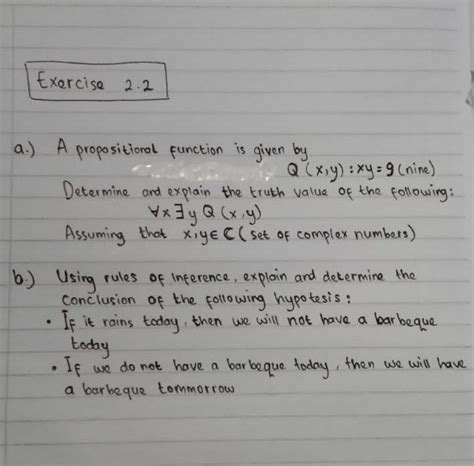 Exercise 2.2
a.) A propositional function is given by
Q (x,y) : xy = 9 (nine)
Determine and explain the truth value of the following:
∀x∃y Q (x,y)
Assuming that x,y∈ℂ (set of complex numbers)
b.) Using rules of inference, explain and determine the
conclusion of the following hypotesis :
• If it rains today, then we will not have a barbeque
today
• If we do not have a barbeque today, then we will have
a barbeque tommorrow